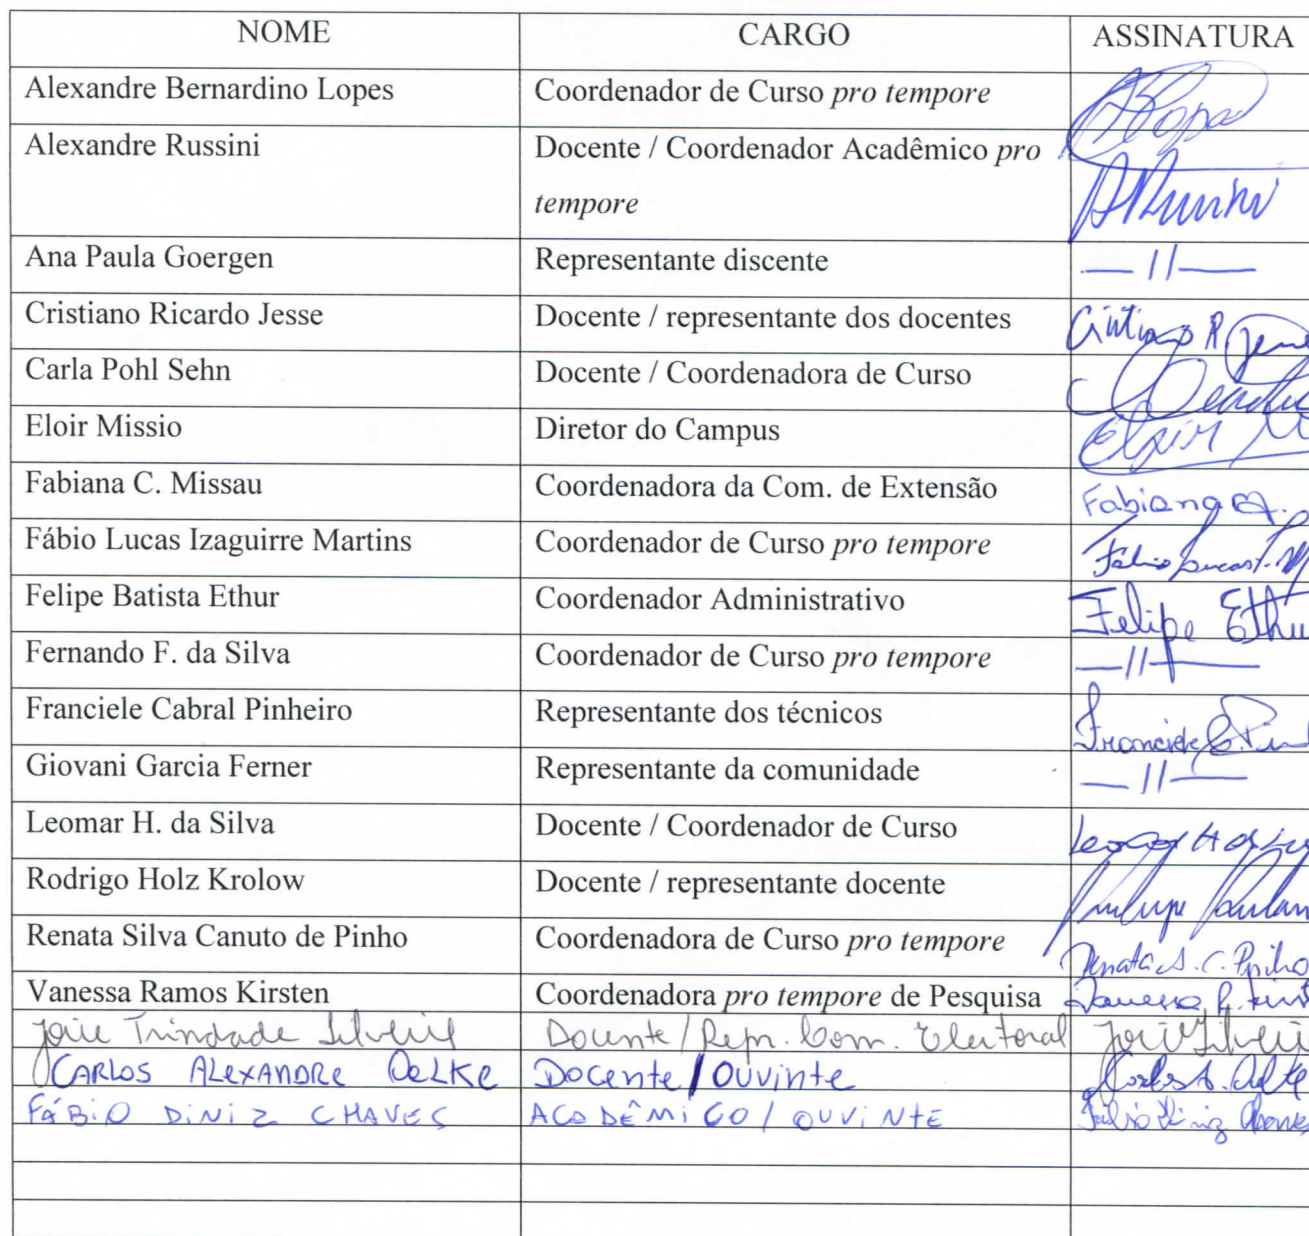 NOME CARGO ASSINATURA
Alexandre Bernardino Lopes Coordenador de Curso pro tempore
Alexandre Russini Docente / Coordenador Acadêmico pro
tempore
Ana Paula Goergen Representante discente — 11 —
Cristiano Ricardo Jesse Docente / representante dos docentes
Carla Pohl Sehn Docente / Coordenadora de Curso
Eloir Missio Diretor do Campus Eloir
Fabiana C. Missau Coordenadora da Com. de Extensão Fabiana
Fábio Lucas Izaguirre Martins Coordenador de Curso pro tempore Fábio Lucas I. M
Felipe Batista Ethur Coordenador Administrativo Felipe Ethu
Fernando F. da Silva Coordenador de Curso pro tempore — 11 —
Franciele Cabral Pinheiro Representante dos técnicos Franciele C. Pin
Giovani Garcia Ferner Representante da comunidade — 11 —
Leomar H. da Silva Docente / Coordenador de Curso
Rodrigo Holz Krolow Docente / representante docente
Renata Silva Canuto de Pinho Coordenadora de Curso pro tempore Renata S. C. Pinho
Vanessa Ramos Kirsten Coordenadora pro tempore de Pesquisa Vanessa R. Kirst
Trindade Docente / Repr. Com. Eleitoral
CARLOS ALEXANDRE OELKE Docente / Ouvinte Carlos A. Oelke
FÁBIO DINIZ CHAVES ACADÊMICO / OUVINTE Fábio Diniz Chaves